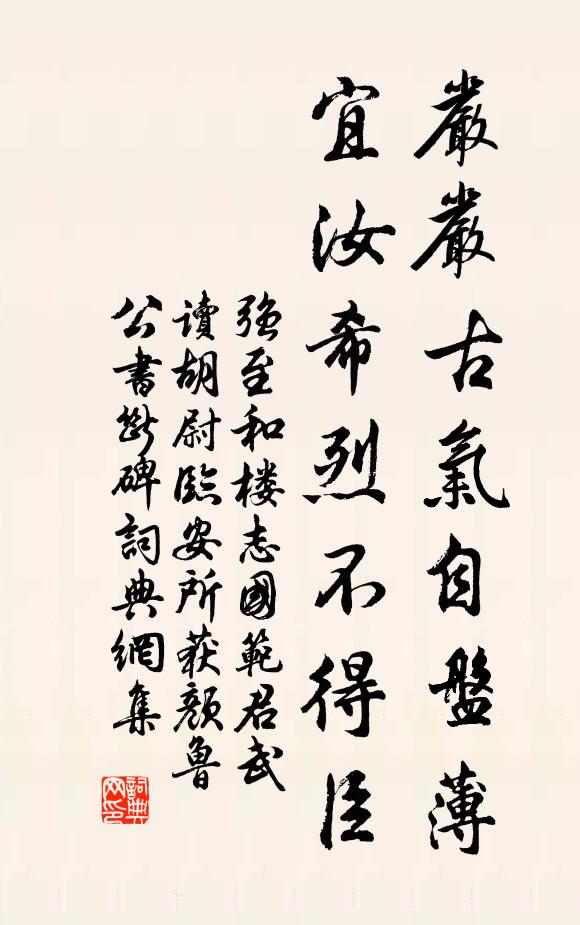 嚴嚴古氣自盤薄
宜汝希烈不得臣
強至和楼志國範君武
讀胡尉臨安所获顏魯
公書斷碑詞典網集
詞典網印